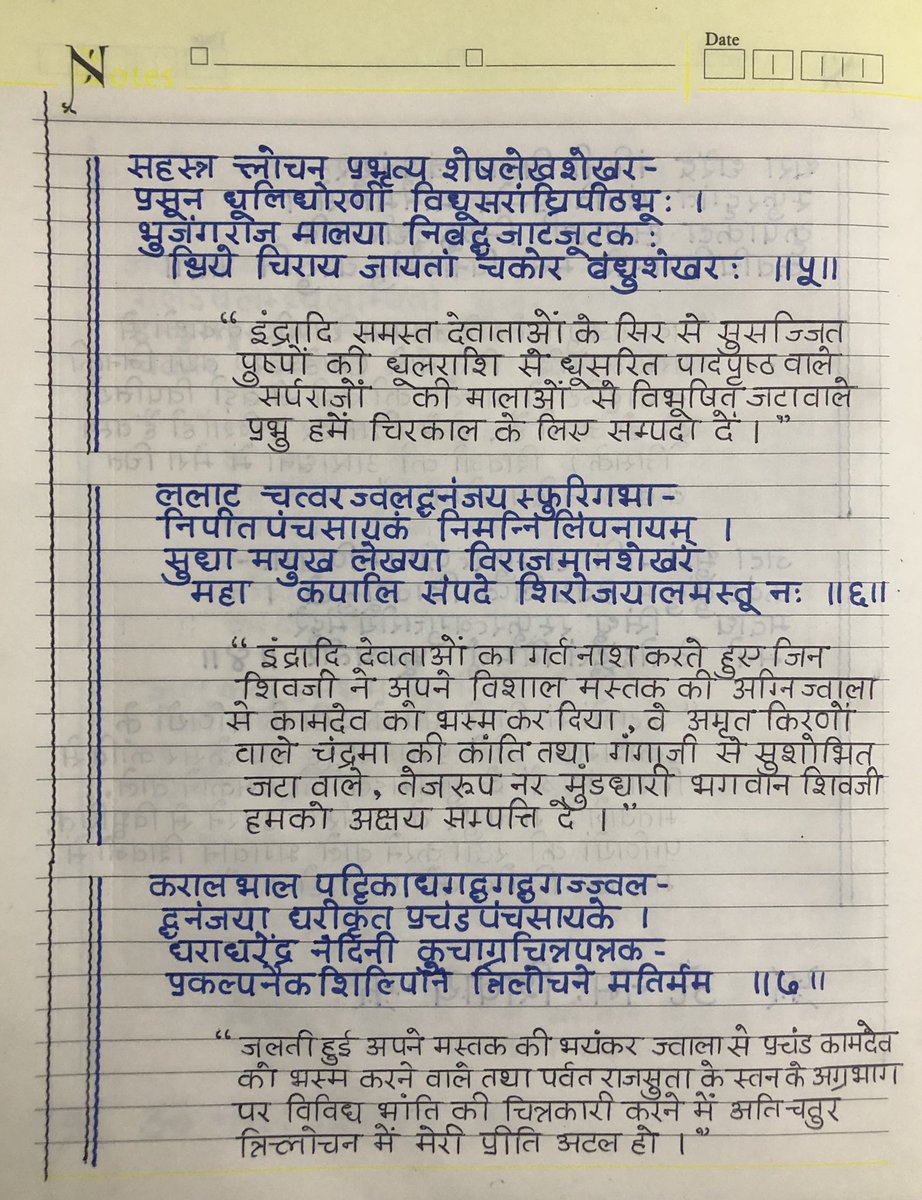 Notes
Date
सहस्त्र लोचन प्रभृत्य शेषलेखशेखर-
प्रसून धूलिधोरणी विधूसरांघ्रिपीठभूः ।
भुजंगराज मालया निबद्धजाटजूटकः
श्रिये चिराय जायतां चकोर बंधुशेखरः ॥५॥
“ इंद्रादि समस्त देवाताओं के सिर से सुसज्जित
पुष्पों की धूलराशि से धूसरित पादपृष्ठ वाले
सर्पराजों की मालाओं से विभूषित जटावाले
प्रभु हमें चिरकाल के लिए सम्पदा दें । ”
ललाट चत्वरज्वलद्धनंजयस्फुरिगभा-
निपीतपंचसायकं निमन्निलिंपनायम् ।
सुधा मयुख लेखया विराजमानशेखरं
महा कपालि संपदे शिरोजयालमस्तू नः ॥६॥
“ इंद्रादि देवताओं का गर्व नाश करते हुए जिन
शिवजी ने अपने विशाल मस्तक की अग्नि ज्वाला
से कामदेव को भस्म कर दिया, वे अमृत किरणों
वाले चंद्रमा की कांति तथा गंगाजी से सुशोभित
जटा वाले, तेज रुप नर मुंडधारी भगवान शिवजी
हमको अक्षय सम्पत्ति दें । ”
कराल भाल पट्टिकाधगद्धगद्धगज्ज्वल-
द्धनंजया धरीकृत प्रचंडपंचसायके ।
धराधरेंद्र नंदिनी कुचाग्रचित्रपत्रक-
प्रकल्पनैकशिल्पिनि त्रिलोचने मतिर्मम ॥७॥
“ जलती हुई अपने मस्तक की भयंकर ज्वाला से प्रचंड कामदेव
को भस्म करने वाले तथा पर्वत राजसुता के स्तन के अग्रभाग
पर विविध भांति की चित्रकारी करने में अति चतुर
त्रिलोचन में मेरी प्रीति अटल हो । ”